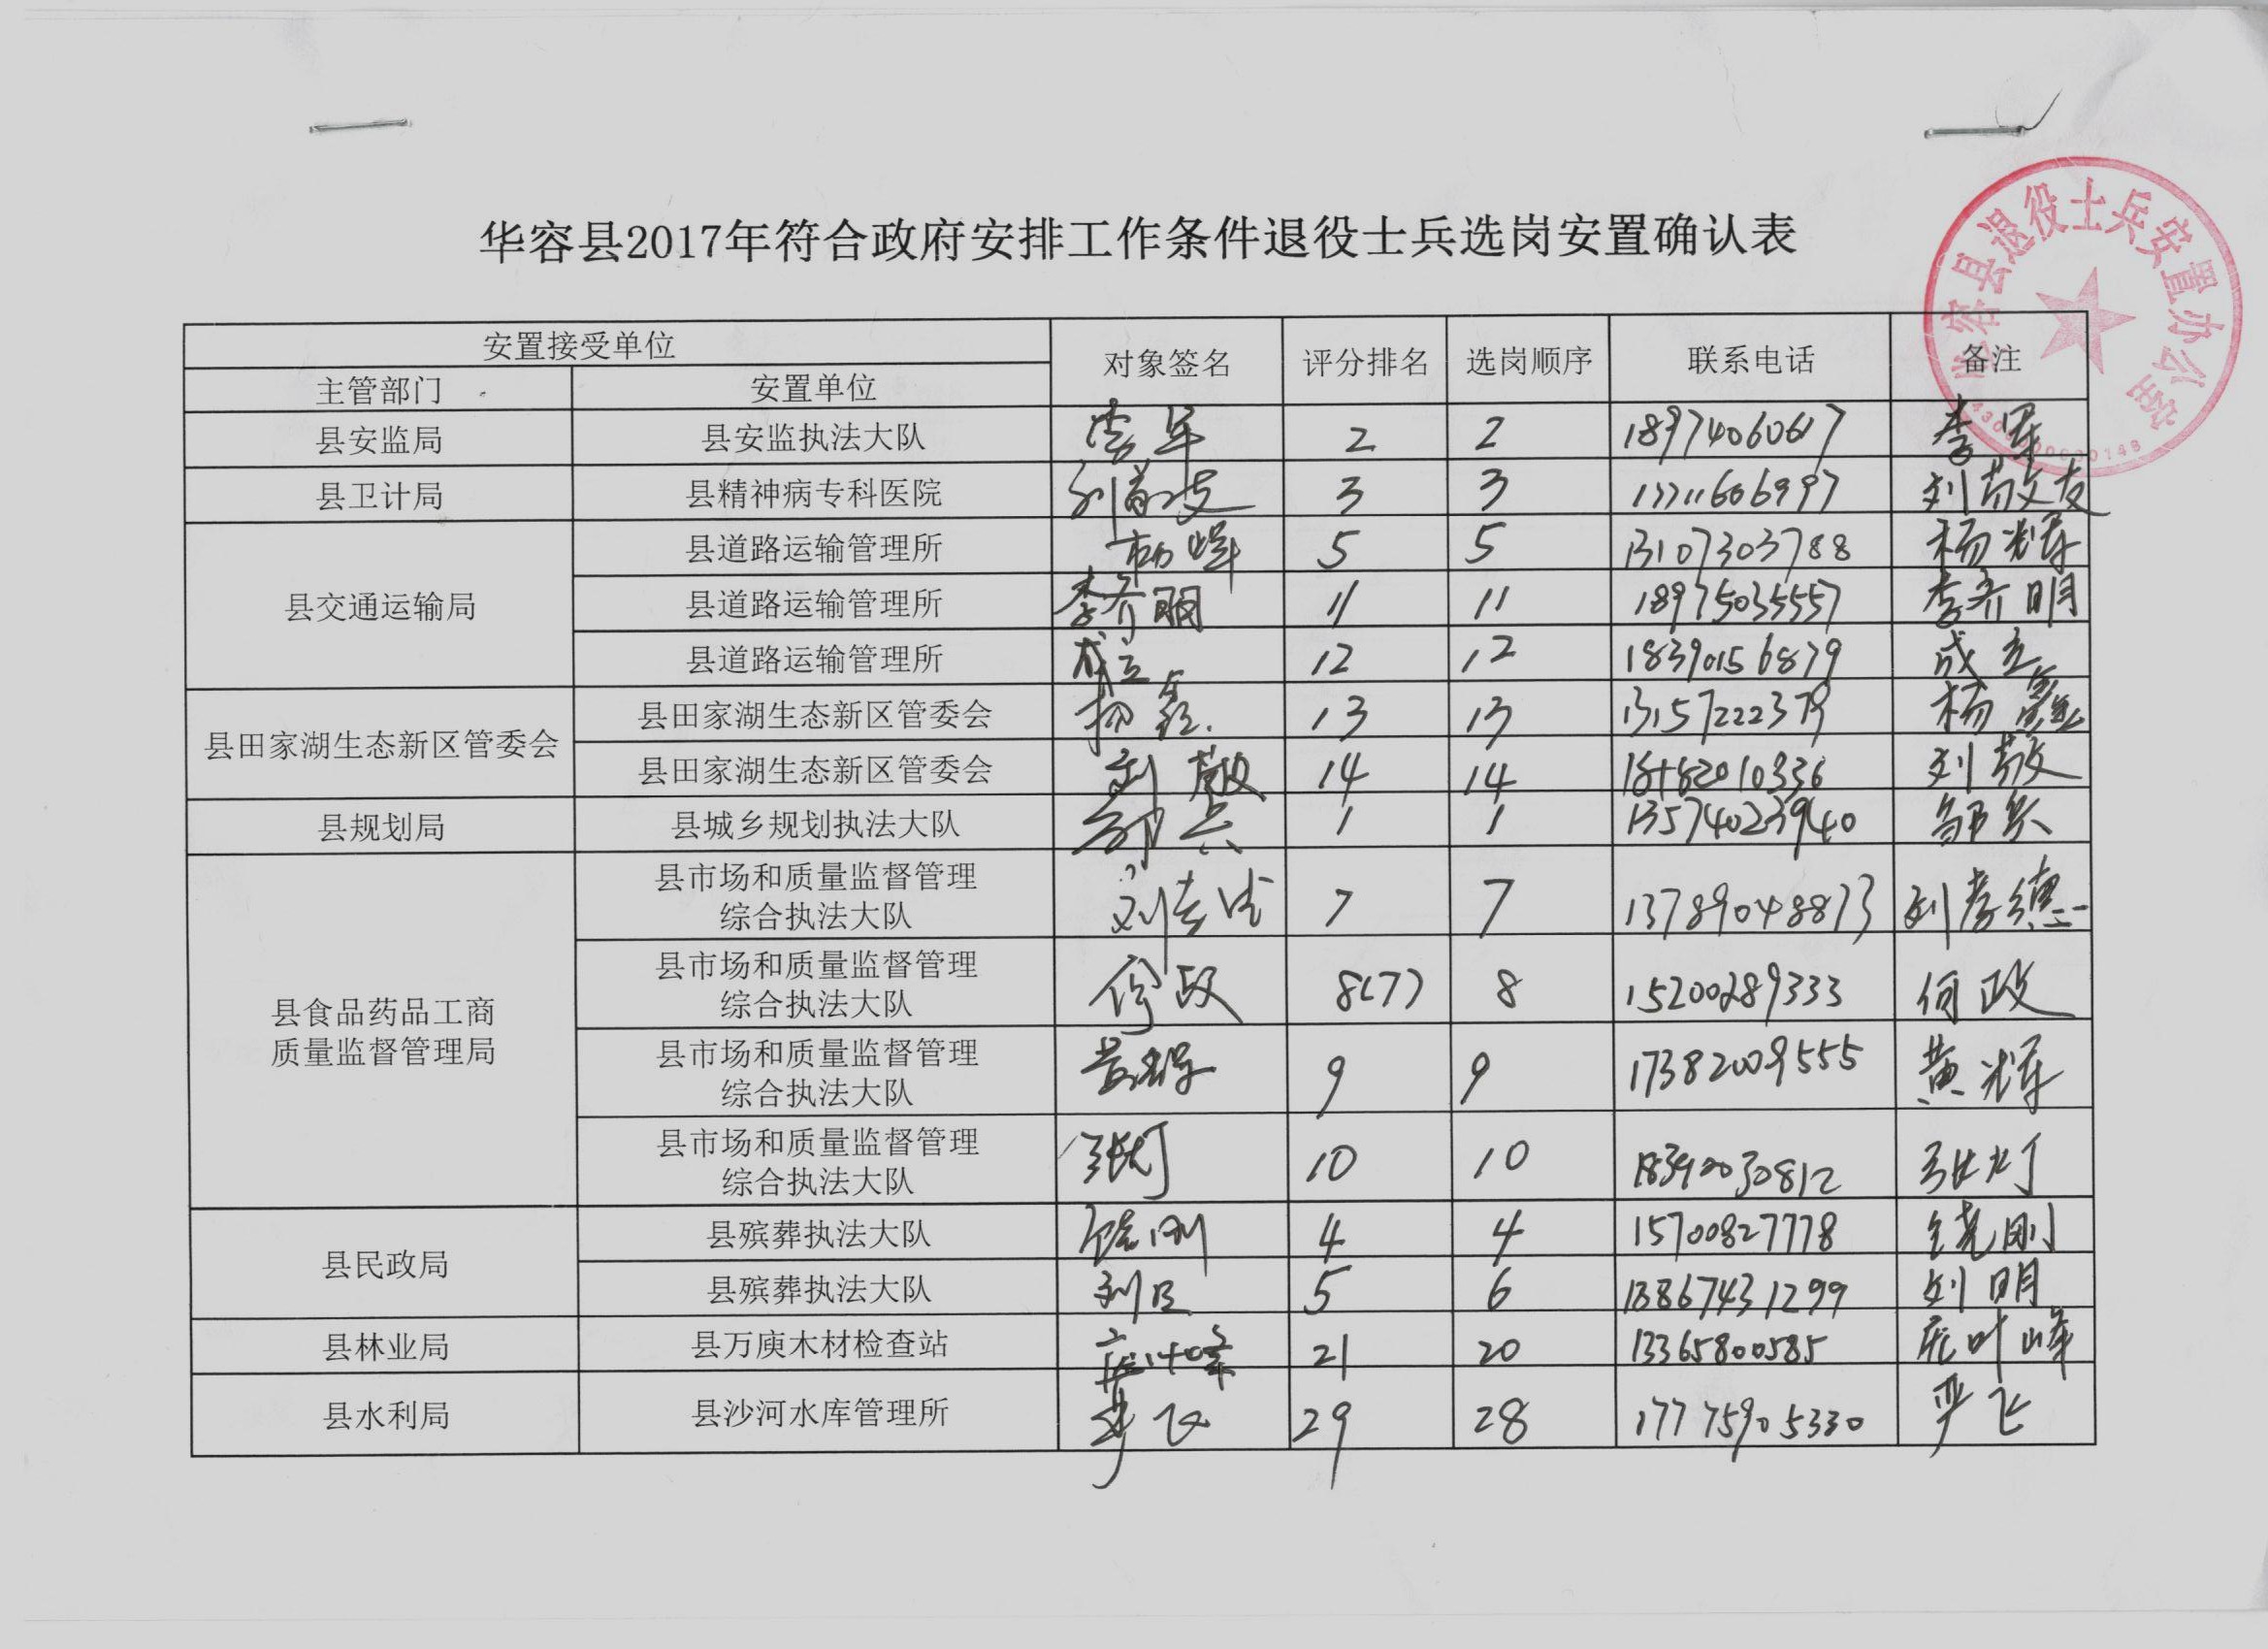 华容县2017年符合政府安排工作条件退役士兵选岗安置确认表
华容县退役士兵安置办公室
安置接受单位 对象签名 评分排名 选岗顺序 联系电话 备注
主管部门 安置单位
县安监局 县安监执法大队 李军 2 2 18974060617 李军
县卫计局 县精神病专科医院 3 3 刘敬友
县交通运输局
县道路运输管理所 杨辉 5 5 13107303788 杨辉
县道路运输管理所 李齐明 11 11 18975035557 李齐明
县道路运输管理所 成立 12 12 18390156879 成立
县田家湖生态新区管委会
县田家湖生态新区管委会 杨鑫 13 13 13157222379 杨鑫
县田家湖生态新区管委会 刘敬 14 14 刘敬
县规划局 县城乡规划执法大队 邹兵 1 1 13574023940 邹兵
县食品药品工商
质量监督管理局
县市场和质量监督管理
综合执法大队 7 7 13789048873 刘孝德
县市场和质量监督管理
综合执法大队 何政 8(7) 8 15200289333 何政
县市场和质量监督管理
综合执法大队 黄辉 9 9 17382009555 黄辉
县市场和质量监督管理
综合执法大队 张灯 10 10 张灯
县民政局
县殡葬执法大队 饶刚 4 4 15700827778 饶刚
县殡葬执法大队 刘明 5 6 18867431299 刘明
县林业局 县万庾木材检查站 庞叶峰 21 20 13365800585 庞叶峰
县水利局 县沙河水库管理所 严飞 29 28 17775905330 严飞